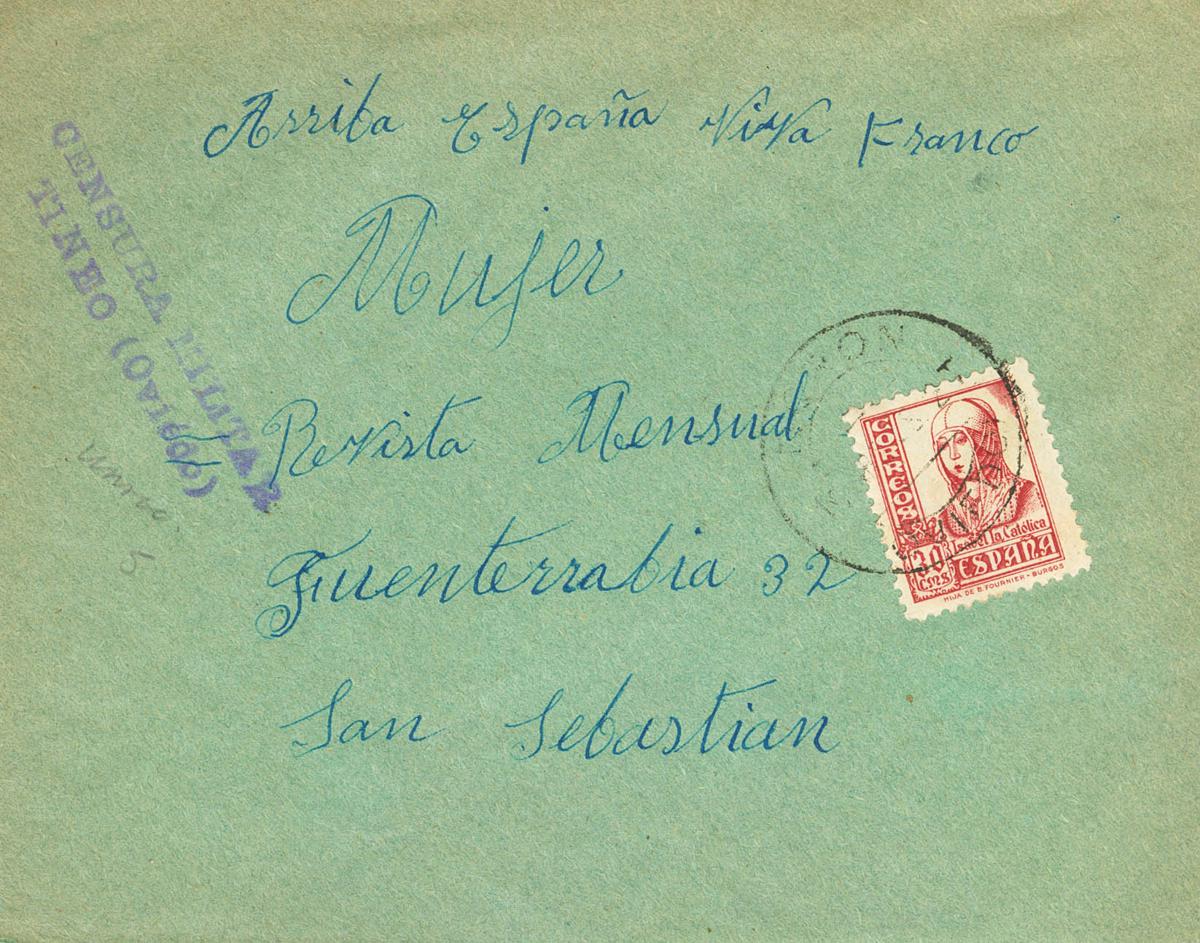 Arriba España ViVa Franco
Mujer
CENSURA MILITAR
TINEO (Oviedo)
Revista Mensual
Fuenterrabia 32
San Sebastian
5
CORREOS
Isabel la Católica
30 CMS ESPAÑA
HIJA DE B. FOURNIER - BURGOS